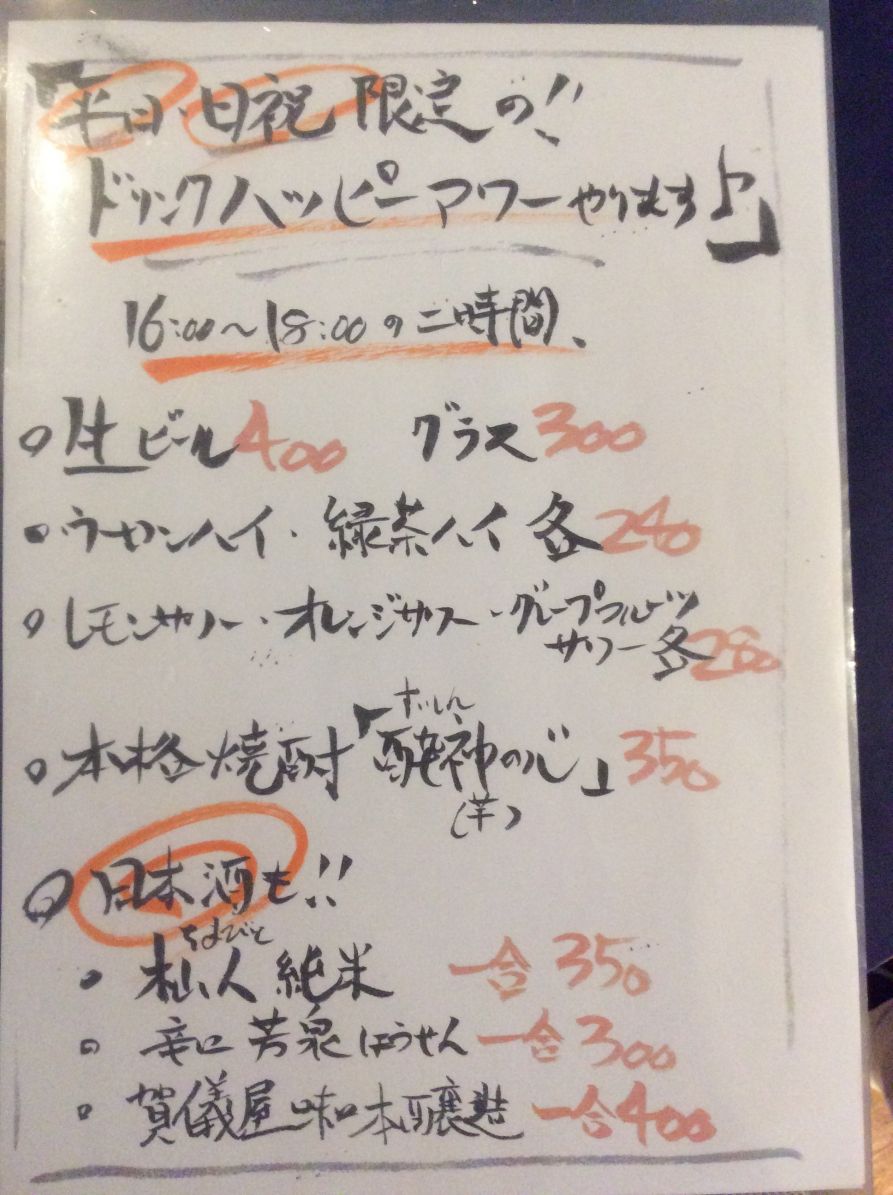 「平日・日祝 限定の!!
ドリンクハッピーアワーやります♪」
16:00〜18:00の二時間、
生ビール400 グラス300
ウーロンハイ・緑茶ハイ 各280
レモンサワー・オレンジサワー・グレープフルーツ
サワー各280
すいしん
本格焼酎「酔神の心」350
(芋)
日本酒も!!
そまびと
杣人 純米 一合350
辛口 芳泉 ほうせん 一合300
賀儀屋 味口本醸造 一合400